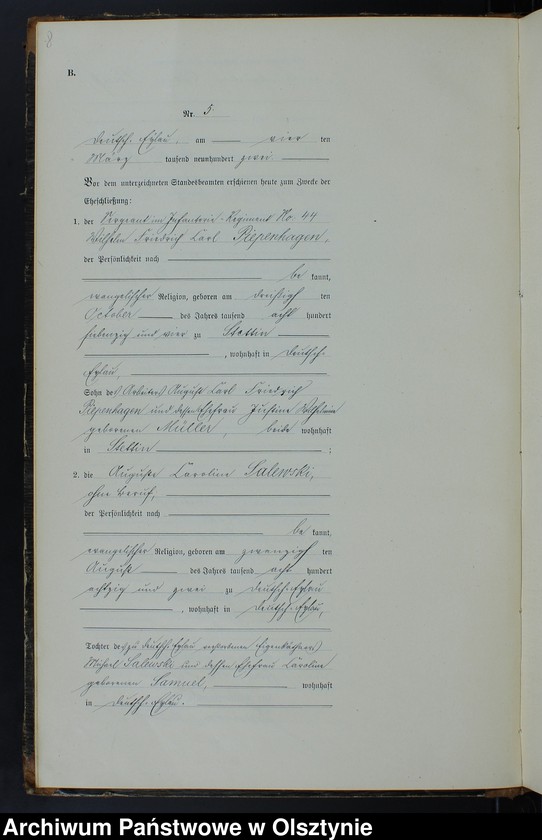 8
B.
Nr. 5.
Deutsch-Eylau, am vier ten
März tausend neunhundert zwei
Vor dem unterzeichneten Standesbeamten erschienen heute zum Zwecke der
Eheschließung:
1. der Sergeant im Infanterie-Regiment No. 44
Wilhelm Friedrich Carl Piepenhagen,
der Persönlichkeit nach
be kannt,
evangelischer Religion, geboren am dreißigst ten
October des Jahres tausend acht hundert
siebenzig und vier zu Stettin
, wohnhaft in Deutsch-
Eylau,
Sohn des Arbeiters August Carl Friedrich
Piepenhagen und dessen Ehefrau Justine Wilhelmine
geborenen Müller, beide wohnhaft
in Stettin ;
2. die Auguste Caroline Salewski,
ohne Beruf,
der Persönlichkeit nach
be kannt,
evangelischer Religion, geboren am zwanzigst ten
August des Jahres tausend acht hundert
achtzig und zwei zu Deutsch-Eylau
, wohnhaft in Deutsch-Eylau,
Tochter des zu Deutsch-Eylau verstorbenen Eigenkäthners
Michael Salewski und dessen Ehefrau Caroline
geborenen Samuel, wohnhaft
in Deutsch-Eylau.
Archiwum Państwowe w Olsztynie